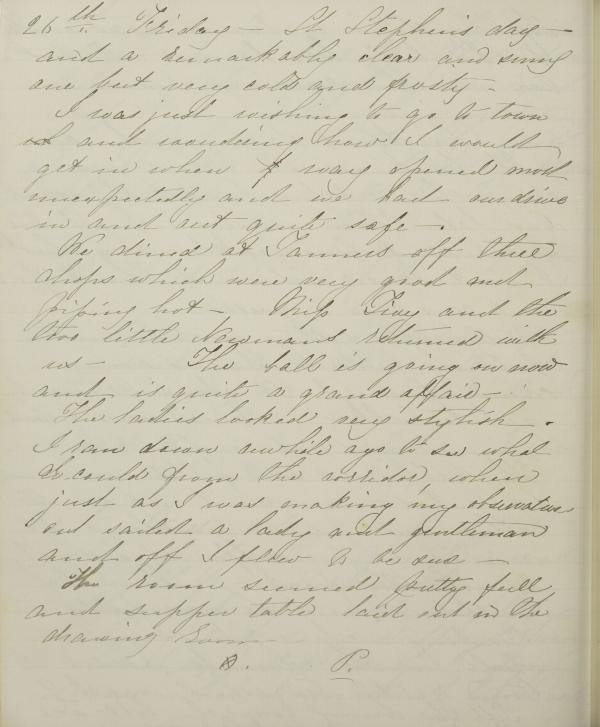 26th. Friday — St Stephens day —
and a remarkably clear and sunny
one but very cold and frosty —
I was just wishing to go to town
and wondering how I would
get in when way opened most
unexpectedly and we had our drive
in and out quite safe —
We dined at Tanners off three
chops which were very good and
piping hot — Miss Tivy and the
two little Newmans returned with
us — The ball is going on now
and is quite a grand affair —
The ladies looked very stylish.
I ran down awhile ago to see what
I could from the corridor, when
just as I was making my observations
out sailed a lady and gentleman
and off I flew to be sure —
The room seemed pretty full
and supper table laid out in the
drawing room —
P.